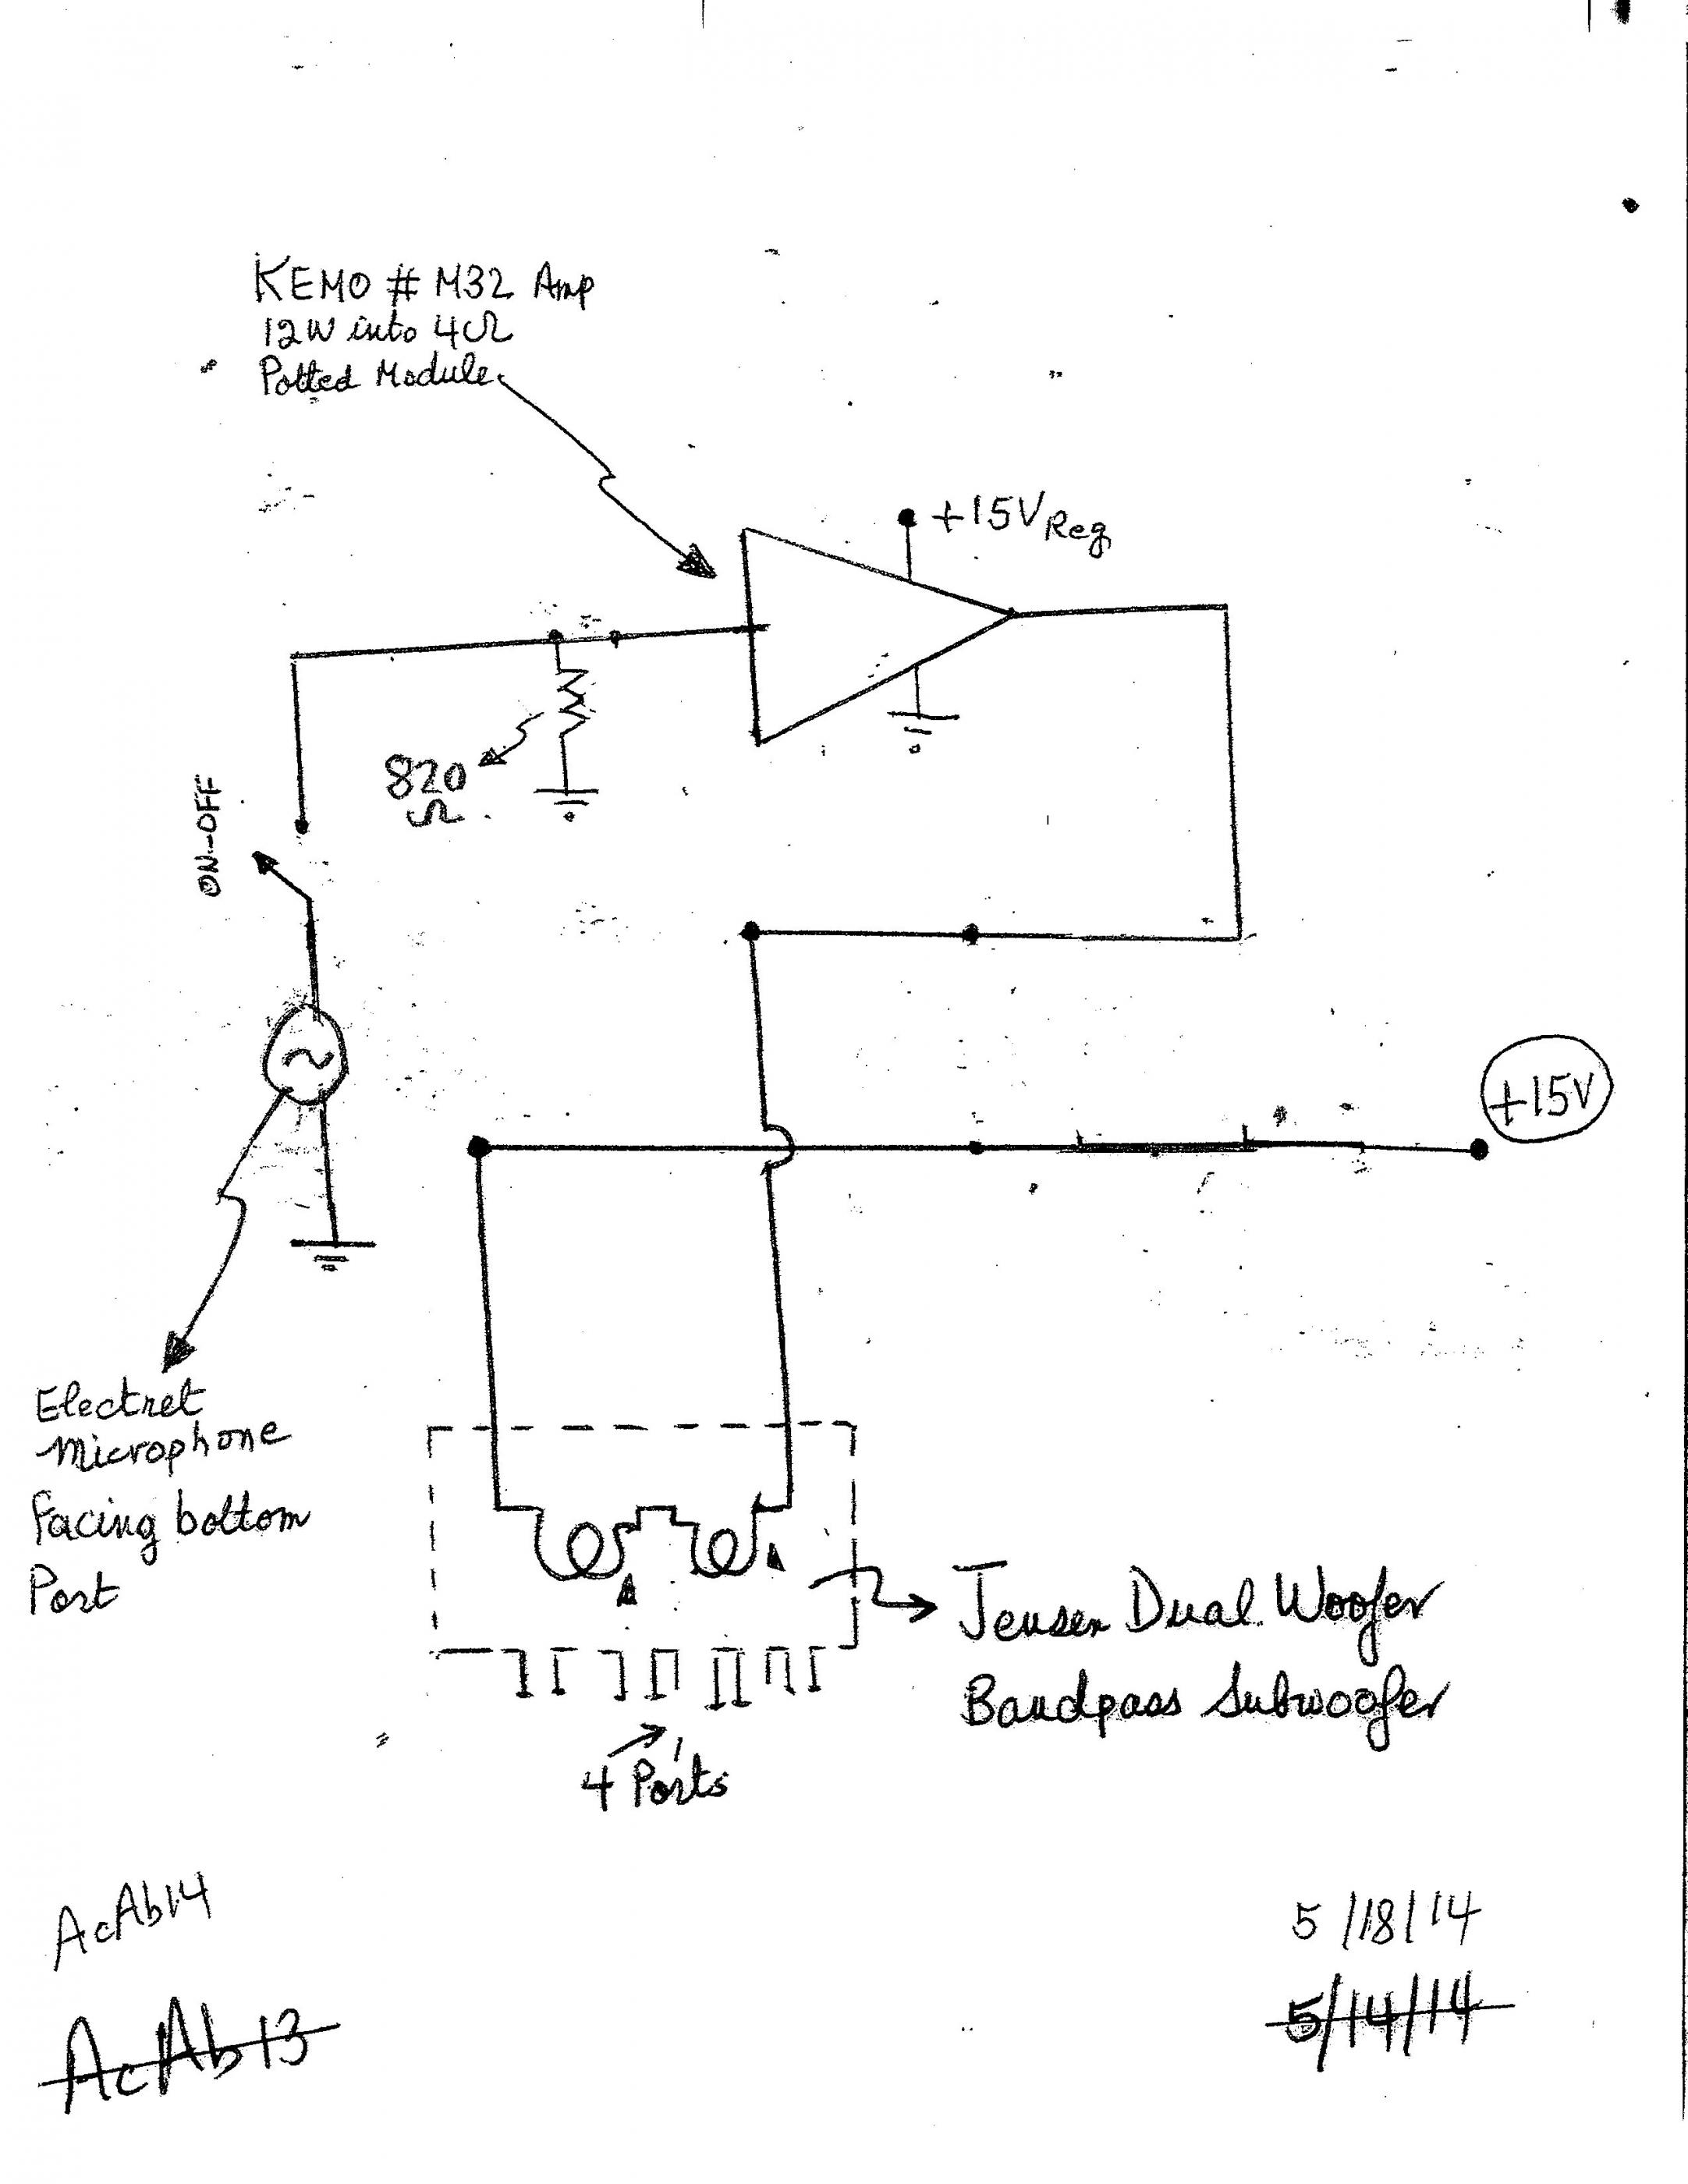 KEMO # M32 Amp
12W into 4Ω
Potted Module
+15V Reg
820
Ω
ON-OFF
+15V
Electret
Microphone
Facing bottom
Port
Jensen Dual Woofer
Bandpass Subwoofer
4 Ports
AcAb14
5/18/14
AcAb13
5/14/14